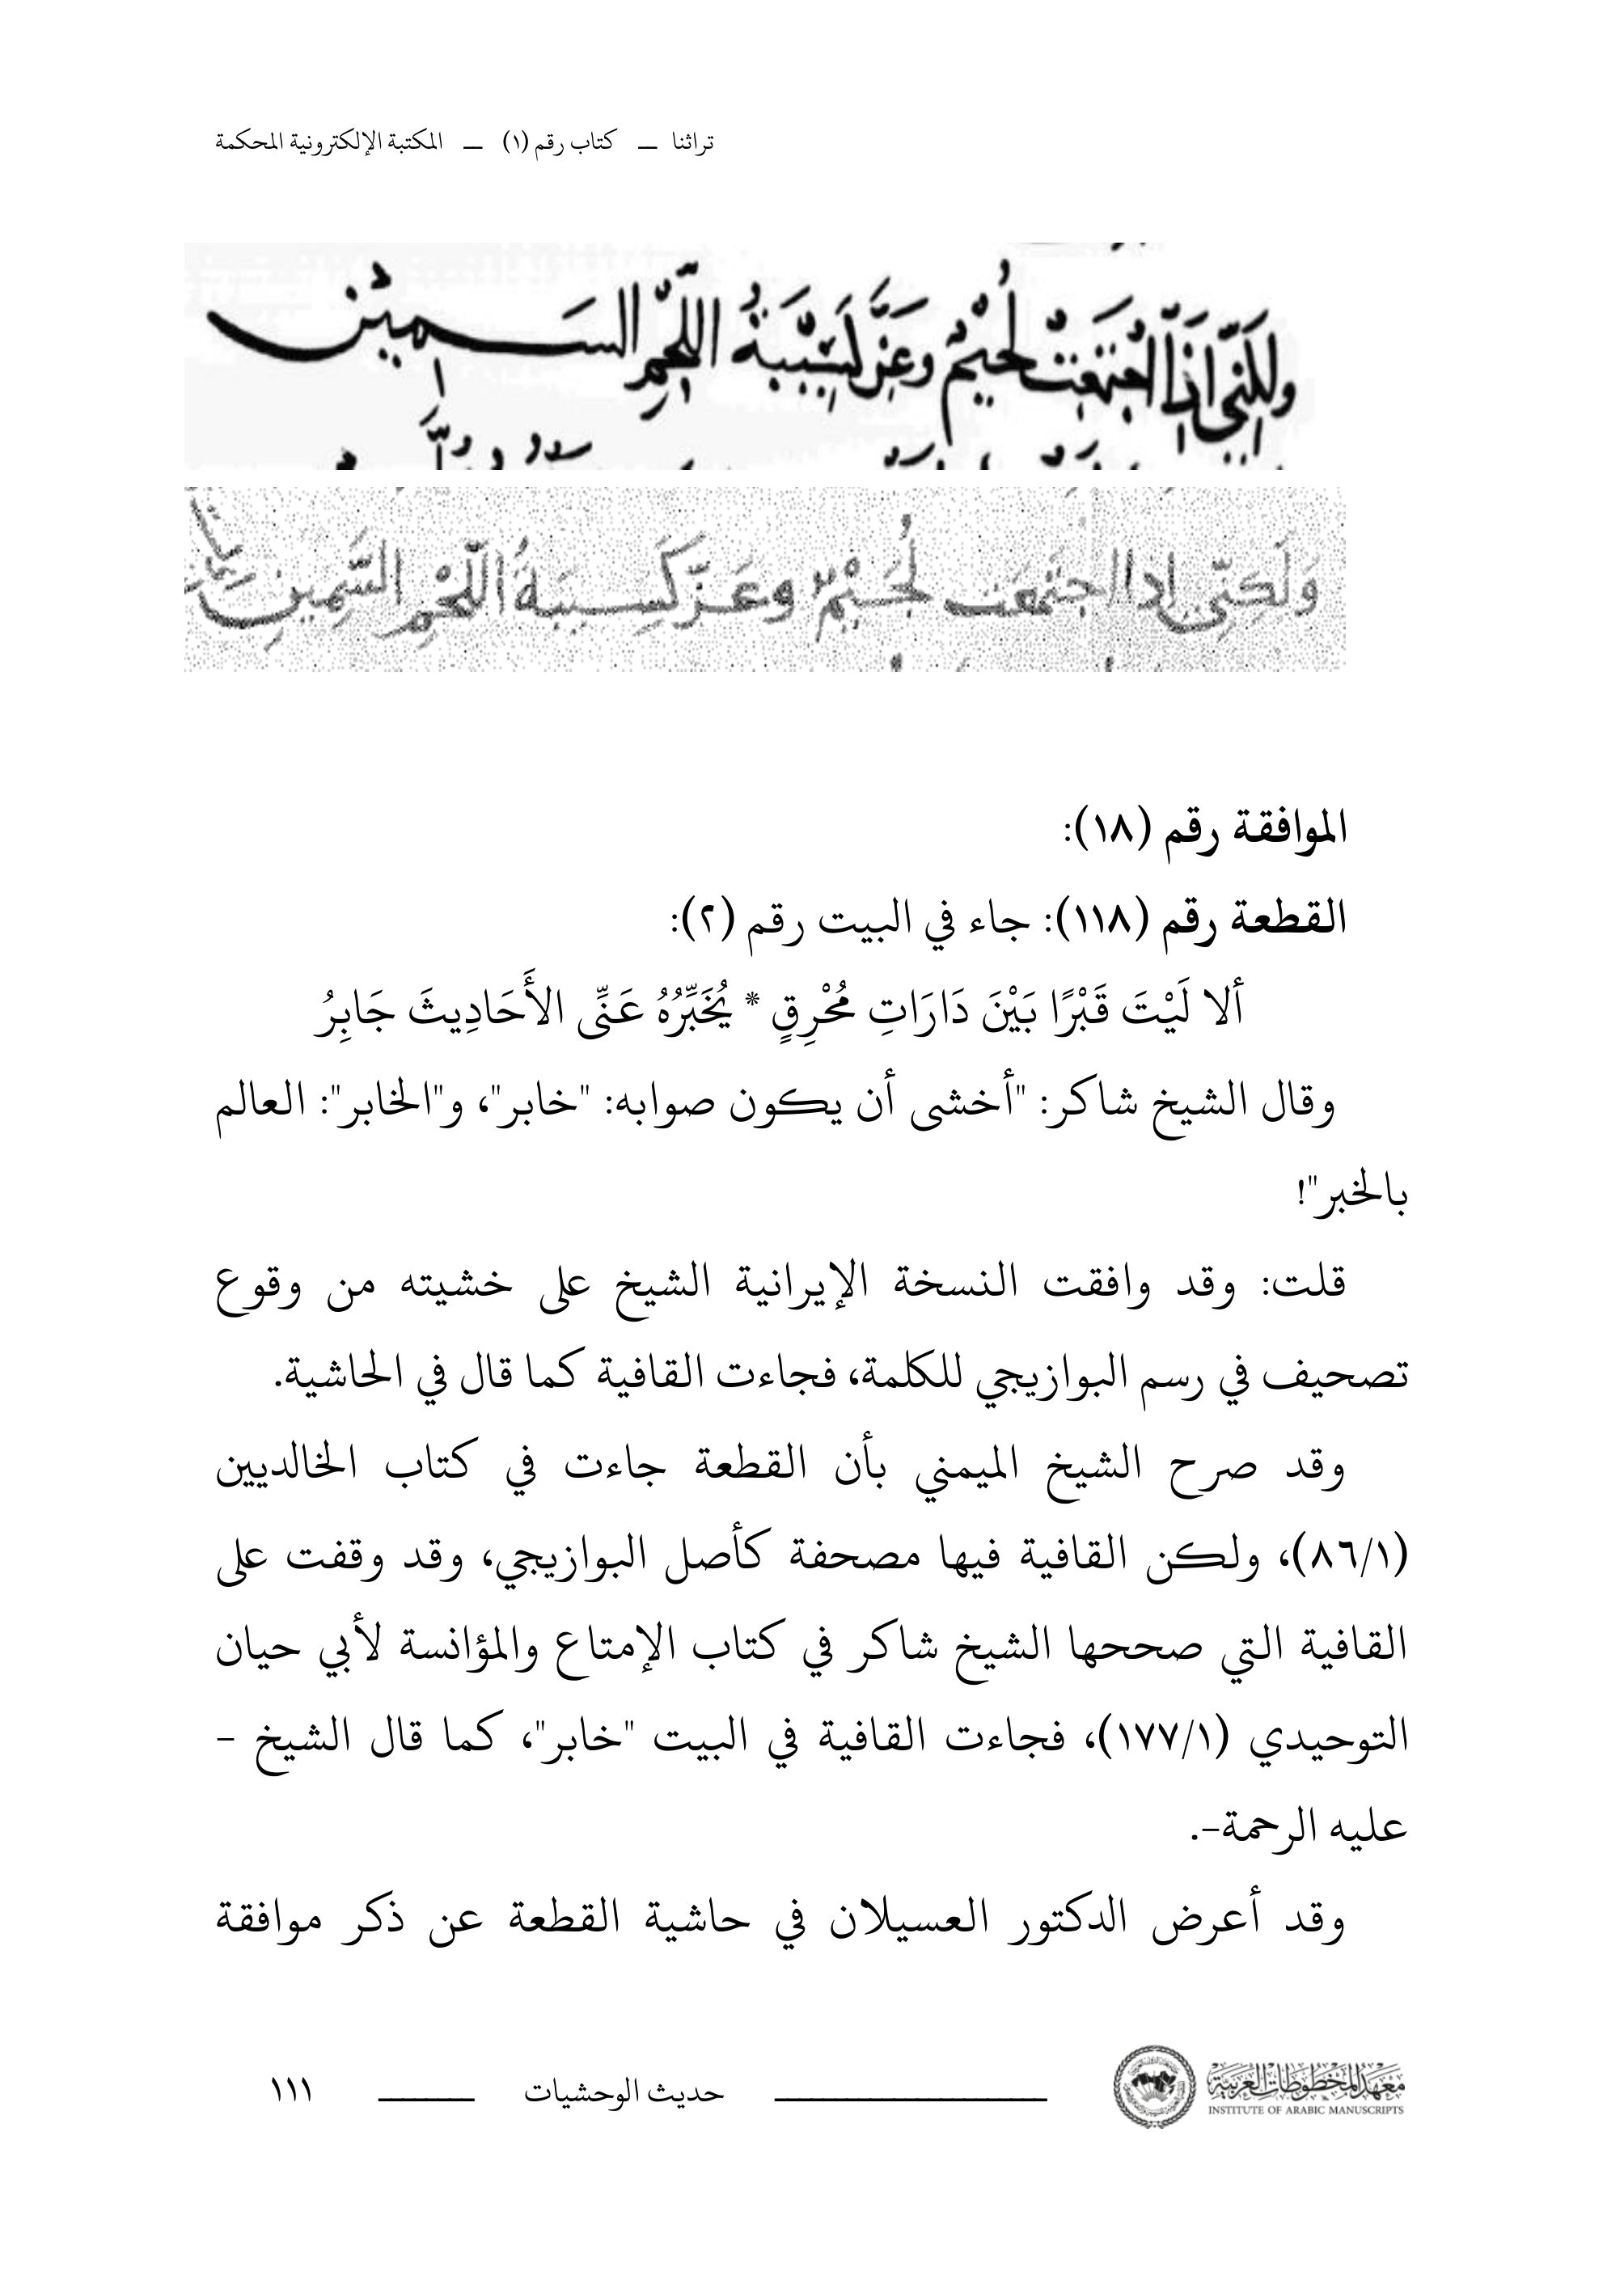 تراثنا — كتاب رقم (١) — المكتبة الإلكترونية المحكمة
ولكني إذا اجتمعت لجيم وعز اللحم السمين
وَلَكِنّي إذا اجتمعت لُجَيْمٌ وعَزّ كسبيبةُ اللّحْمِ السَّمِينِ
الموافقة رقم (١٨):
القطعة رقم (١١٨): جاء في البيت رقم (٢):
ألا لَيْتَ قَبْرًا بَيْنَ دَارَاتِ مُحْرِقٍ * يُخَبِّرُهُ عَنِّى الأَحَادِيثَ جَابِرُ
وقال الشيخ شاكر: "أخشى أن يكون صوابه: "خابر"، و"الخابر": العالم
بالخبر"!
قلت: وقد وافقت النسخة الإيرانية الشيخ على خشيته من وقوع
تصحيف في رسم البوازيجي للكلمة، فجاءت القافية كما قال في الحاشية.
وقد صرح الشيخ الميمني بأن القطعة جاءت في كتاب الخالديين
(٨٦/١)، ولكن القافية فيها مصحفة كأصل البوازيجي، وقد وقفت على
القافية التي صححها الشيخ شاكر في كتاب الإمتاع والمؤانسة لأبي حيان
التوحيدي (١٧٧/١)، فجاءت القافية في البيت "خابر"، كما قال الشيخ -
عليه الرحمة-.
وقد أعرض الدكتور العسيلان في حاشية القطعة عن ذكر موافقة
معهد المخطوطات العربية
INSTITUTE OF ARABIC MANUSCRIPTS
حديث الوحشيات
١١١